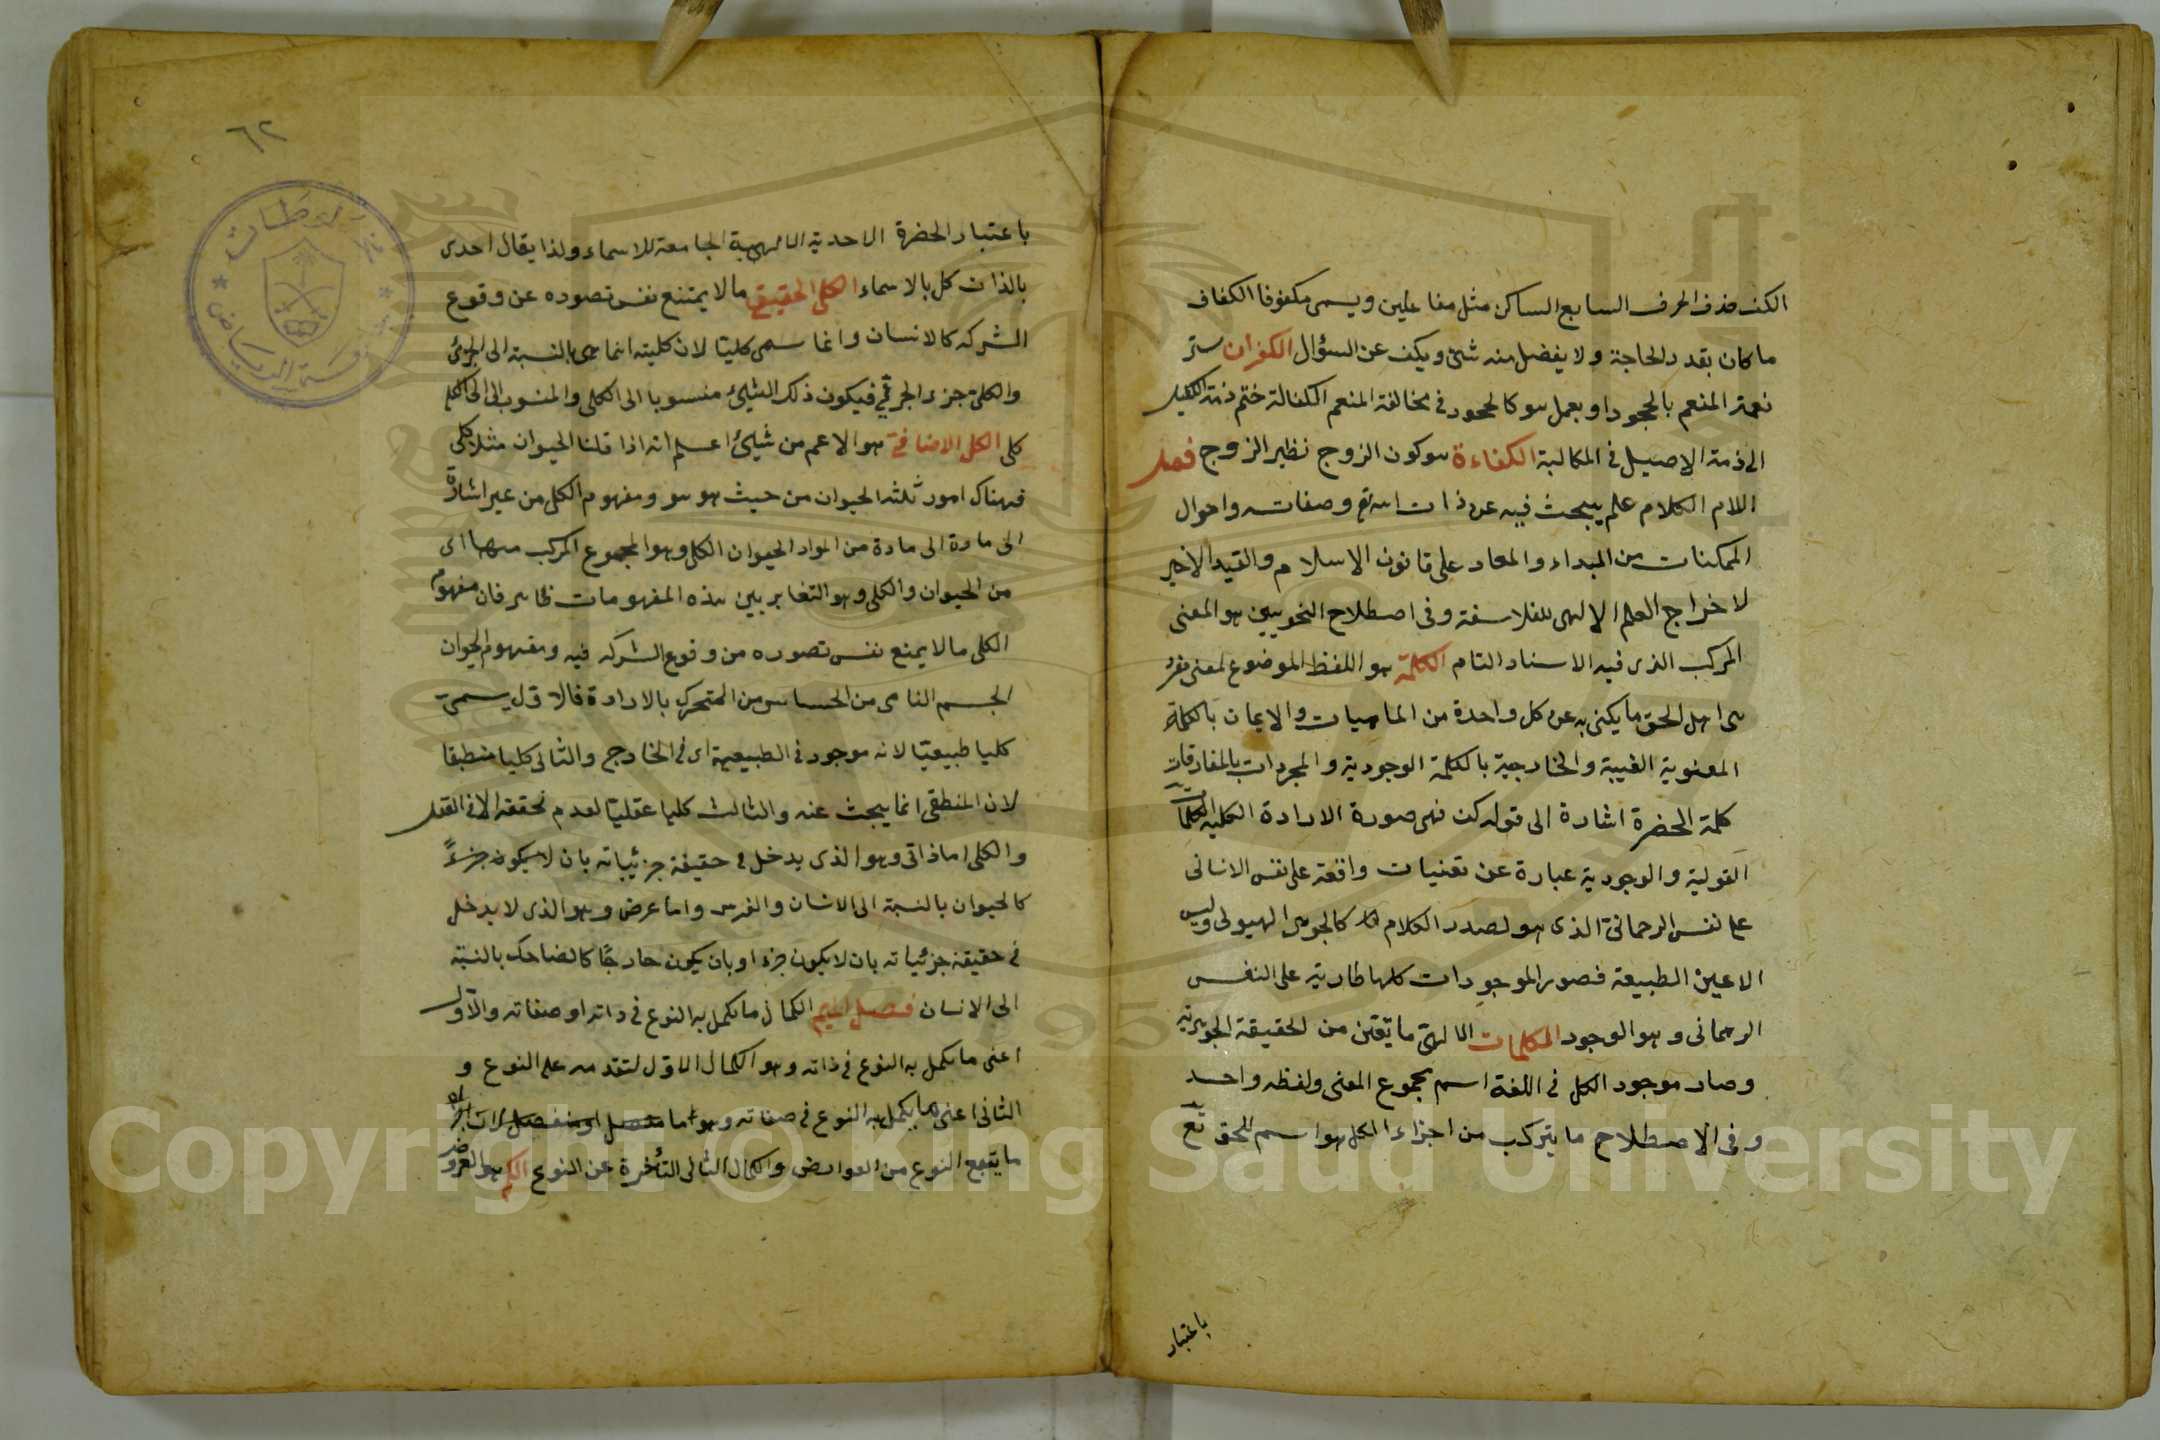 الكف حذف الحرف السابع الساكن مثل مفاعلين ويسمى مكفوفا الكفاف
ما كان بقدر الحاجة ولا يفضل منه شئ ويكف عن السؤال الكفران ستر
نعمة المنعم بالجحود او بعمل هو كالجحود في مخالفة المنعم الكفالة ختم ذمة الكفيل
الى ذمة الاصيل في المكالبة الكفاءة هو كون الزوج نظير الزوج فصل
اللام الكلام علم يبحث فيه عن ذات الله تع وصفاته واحوال
الممكنات من المبداء والمعاد على قانون الاسلام والقيد الاخير
لاخراج العلم الالهى للفلاسفة وفى اصطلاح النحويين هو المعنى
المركب الذى فيه الاسناد التام الكلمة هو اللفظ الموضوع لمعنى مفرد
هى اهل الحق ما يكنى به عن كل واحدة من الماهيات والايمان بالكلمة
المعنوية الغيبة والخارجية بالكلمة الوجودية والمجردات بالمفارقات
كلمة الحضرة اشارة الى قوله كن فهى صورة الارادة الكلية الكلمات
القولية والوجودية عبارة عن تعنيات واقعة على نفس الانسانى
على نفس الرحمانى الذى هو لصدر الكلام كالجوهر الهيولى وليس
الا عين الطبيعة فصور الموجودات كلها طارية على النفس
الرحمانى وهو الوجود الكلمات الالهى ما تعين من الحقيقة الجوهرية
وصار موجود الكل في اللغة اسم مجموع المعنى ولفظه واحد
وفى الاصطلاح ما يتركب من اجزاء الكل هو اسم للحق تع
باعتبار
٦٢
باعتبار الحضرة الاحدية الالهية الجامعة للاسماء ولذا يقال احدى
بالذات كل بالاسماء الكلى الحقيقى ما لا يمتنع نفس تصوره عن وقوع
الشركه كالانسان وانما سمى كليا لان كليته انما هى بالنسبة الى الجزئى
والكلى جزء الجزئى فيكون ذلك الشيئ منسوبا الى الكلى والمنسوب الى الكل
كلى الكلى الاضافى هو الاعم من شيئ اعلم انه اذا قلنا الحيوان مثلا كلى
فهناك امور ثلثه الحيوان من حيث هو هو ومفهوم الكلى من غير اشارة
الى مادة الى مادة من المواد الحيوان الكلى وهو المجموع المركب منهما اى
من الحيوان والكلى وهو التغاير بين هذه المفهومات ظاهر فان مفهوم
الكلى ما لا يمنع نفس تصوره من وقوع الشركه فيه ومفهوم الحيوان
الجسم النامى من الحساس من المتحرك بالارادة فالاول يسمى
كليا طبيعيا لانه موجود في الطبيعية اى في الخارج والثانى كليا منطبقا
لان المنطقى انما يبحث عنه والثالث كليا عقليا لعدم تحققه الا في العقل
والكلى اما ذاتى وهو الذى يدخل في حقيقة جزئياته بان لا يكون جزءً
كالحيوان بالنسبة الى الانسان والفرس واما عرض وهو الذى لا يدخل
في حقيقة جزئياته بان لا يكون جزءا وبان يكون خارجًا كالضاحك بالنسبة
الى الانسان فصل الميم الكمال ما يكمل به النوع في ذاته او صفاته والاول
اعنى ما يكمل به النوع في ذاته وهو الكمال الاول لتقدمه على النوع و
الثانى اعنى ما يكمل به النوع في صفاته وهو اما متصل او منفصل لان
ما يتبع النوع من العوارض والكمال الثانى المتأخرة عن النوع الكم هو العرض